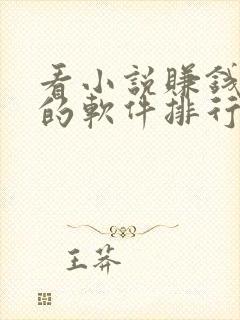 看小説賺錢
的軟件排行
王莽